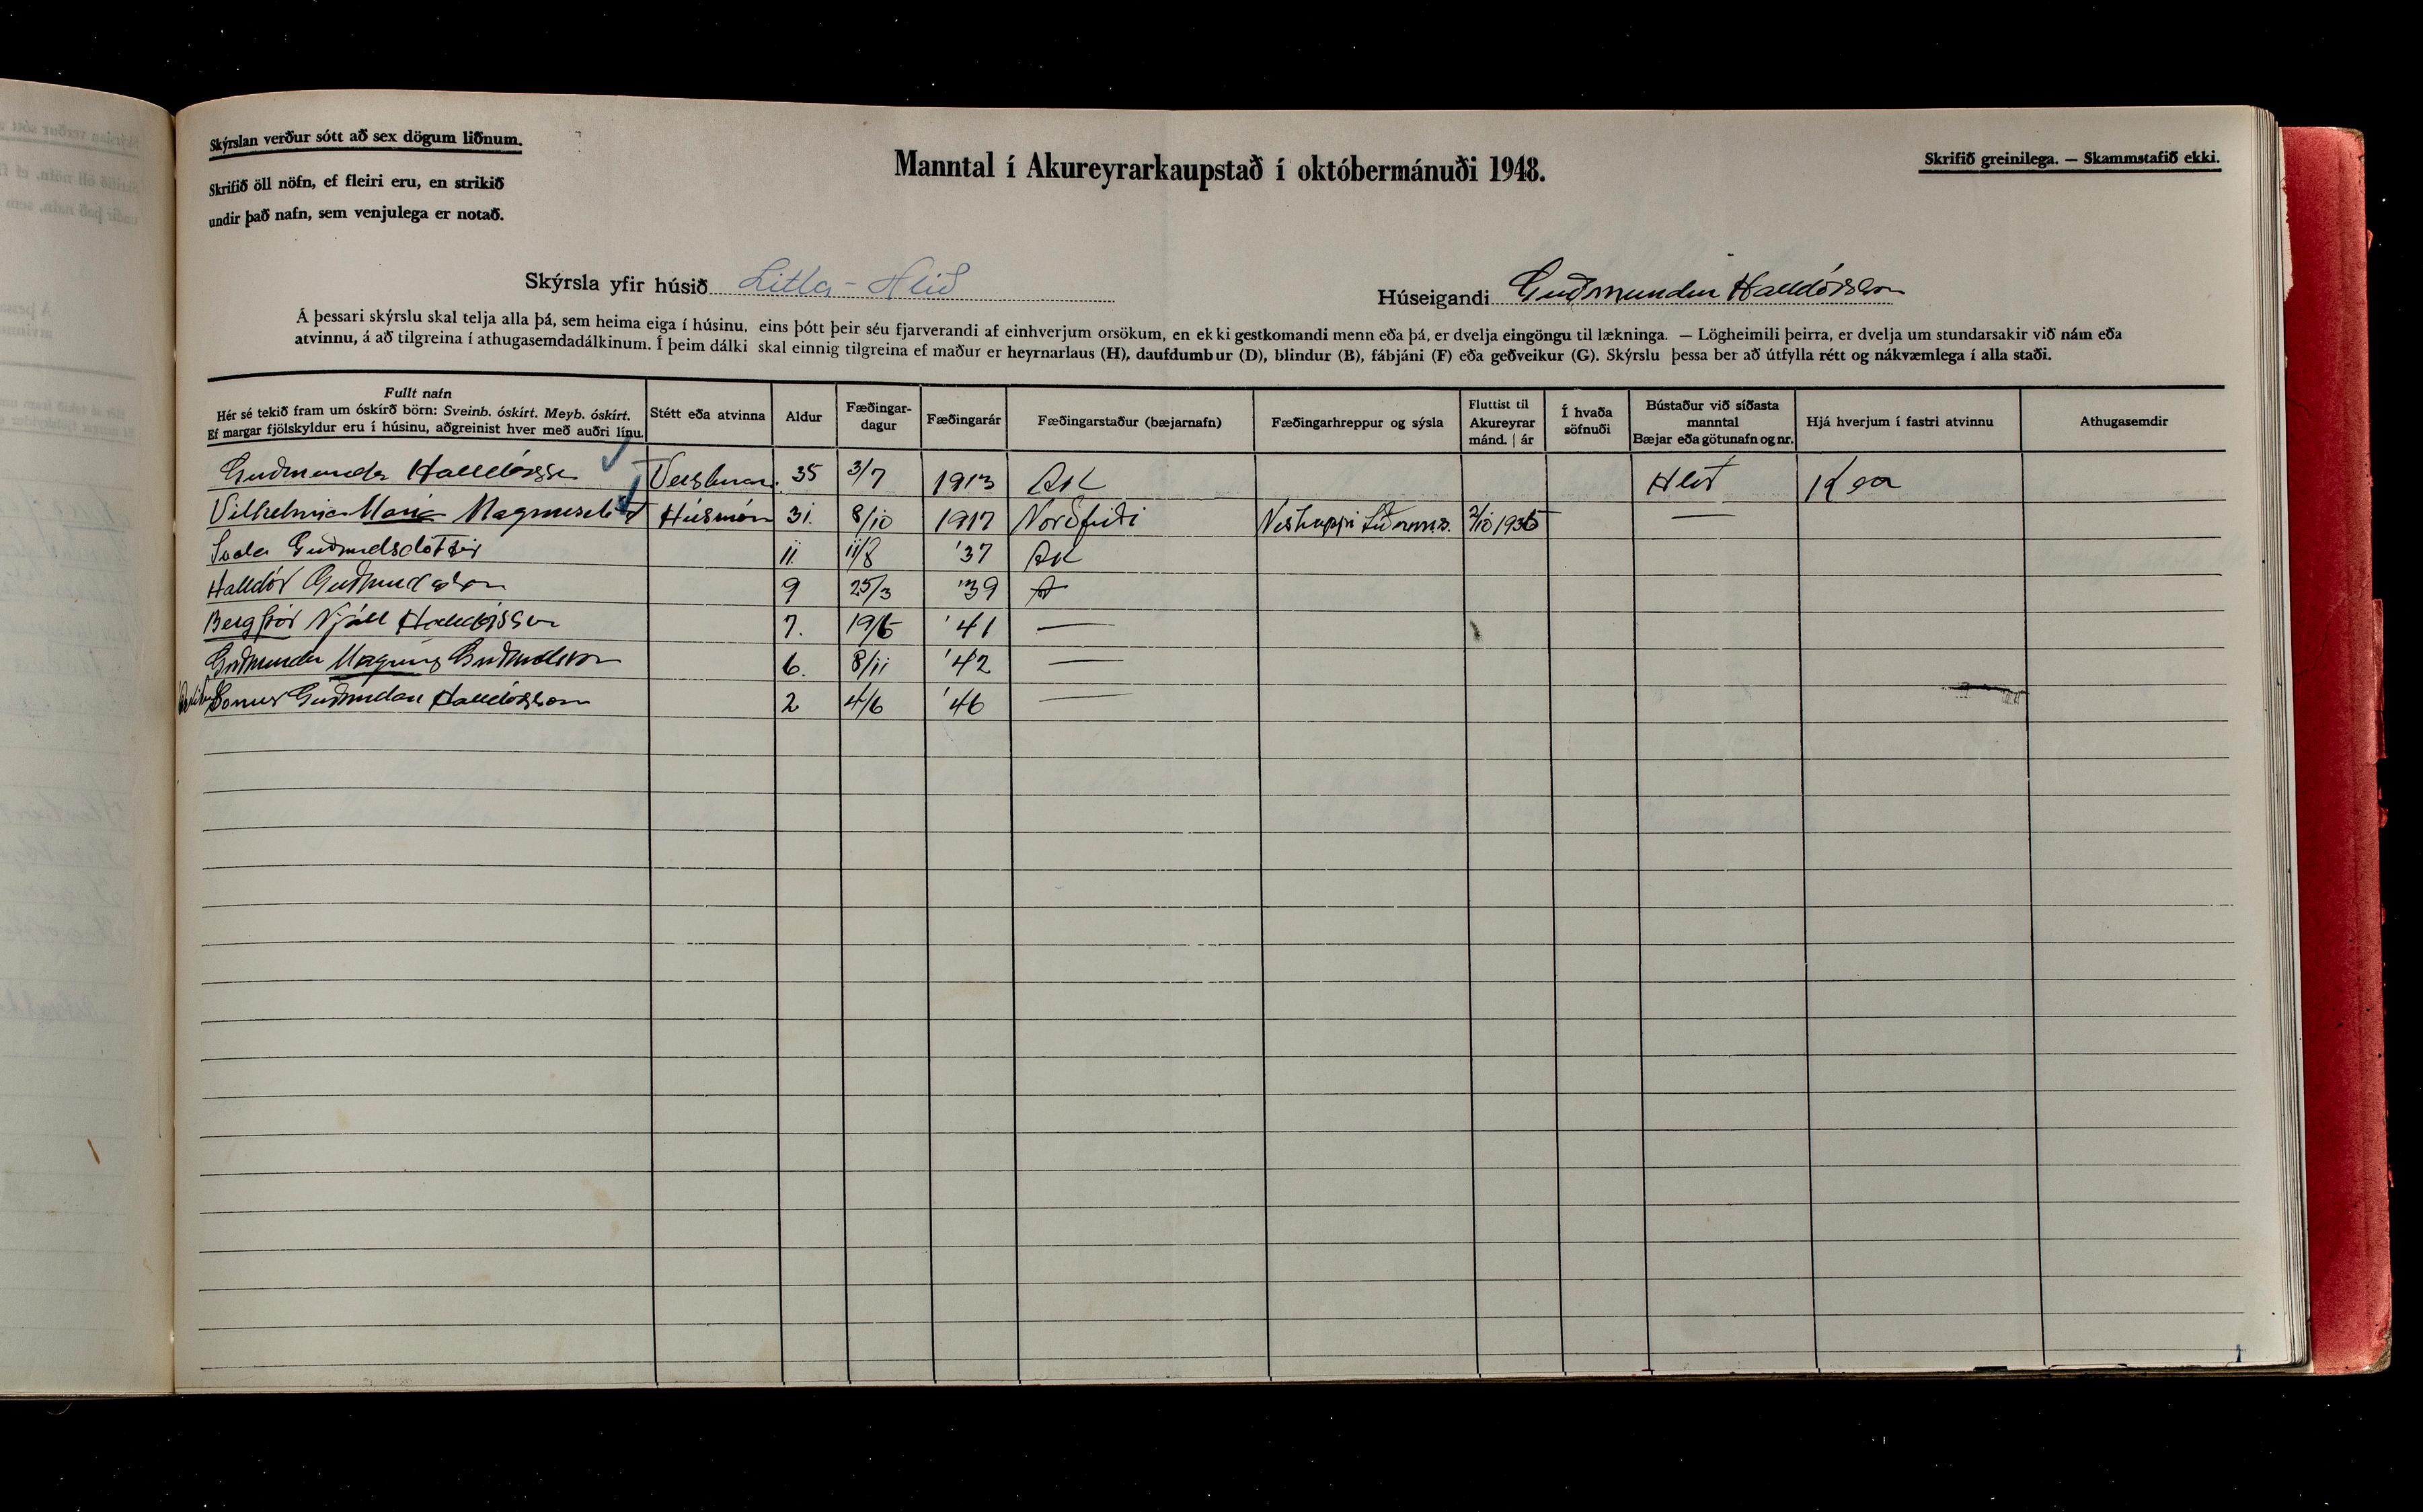 Skýrslan verður sótt að sex dögum liðnum.
Skrifið öll nöfn, ef fleiri eru, en strikið
undir það nafn, sem venjulega er notað.
Manntal í Akureyrarkaupstað í októbermánuði 1948.
Skrifið greinilega. — Skammstafið ekki.
Skýrsla yfir húsið Litla-Hlíð
Húseigandi Guðmundur Halldórsson
Á þessari skýrslu skal telja alla þá, sem heima eiga í húsinu, eins þótt þeir séu fjarverandi af einhverjum orsökum, en ekki gestkomandi menn eða þá, er dvelja eingöngu til lækninga. — Lögheimili þeirra, er dvelja um stundarsakir við nám eða
atvinnu, á að tilgreina í athugasemdadálkinum. Í þeim dálki skal einnig tilgreina ef maður er heyrnarlaus (H), daufdumbur (D), blindur (B), fábjáni (F) eða geðveikur (G). Skýrslu þessa ber að útfylla rétt og nákvæmlega í alla staði.
Fullt nafn
Hér sé tekið fram um óskírð börn: Sveinb. óskírt. Meyb. óskírt.
Ef margar fjölskyldur eru í húsinu, aðgreinist hver með auðri línu.
Stétt eða atvinna
Aldur
Fæðingar-
dagur
Fæðingarár
Fæðingarstaður (bæjarnafn)
Fæðingarhreppur og sýsla
Fluttist til
Akureyrar
mánd. | ár
Í hvaða
söfnuði
Bústaður við síðasta
manntal
Bæjar eða götunafn og nr.
Hjá hverjum í fastri atvinnu
Athugasemdir
Guðmundur Halldórsson 35 3/7 1913 AK Hlíð Kea
Vilhelmína María Magnúsd Húsmóð 31. 8/10 1917 Norðfirði 1935 —
Guðmundsdóttir 11. 11/8 '37 AK
Halldór Guðmundsson 9 25/3 '39
Bergþór Njáll Halldórsson 7. 19/5 '41 —
Guðmundur Magnús Guðmundsson 6. 8/11 '42 —
Halldórsson 2 4/6 '46 —